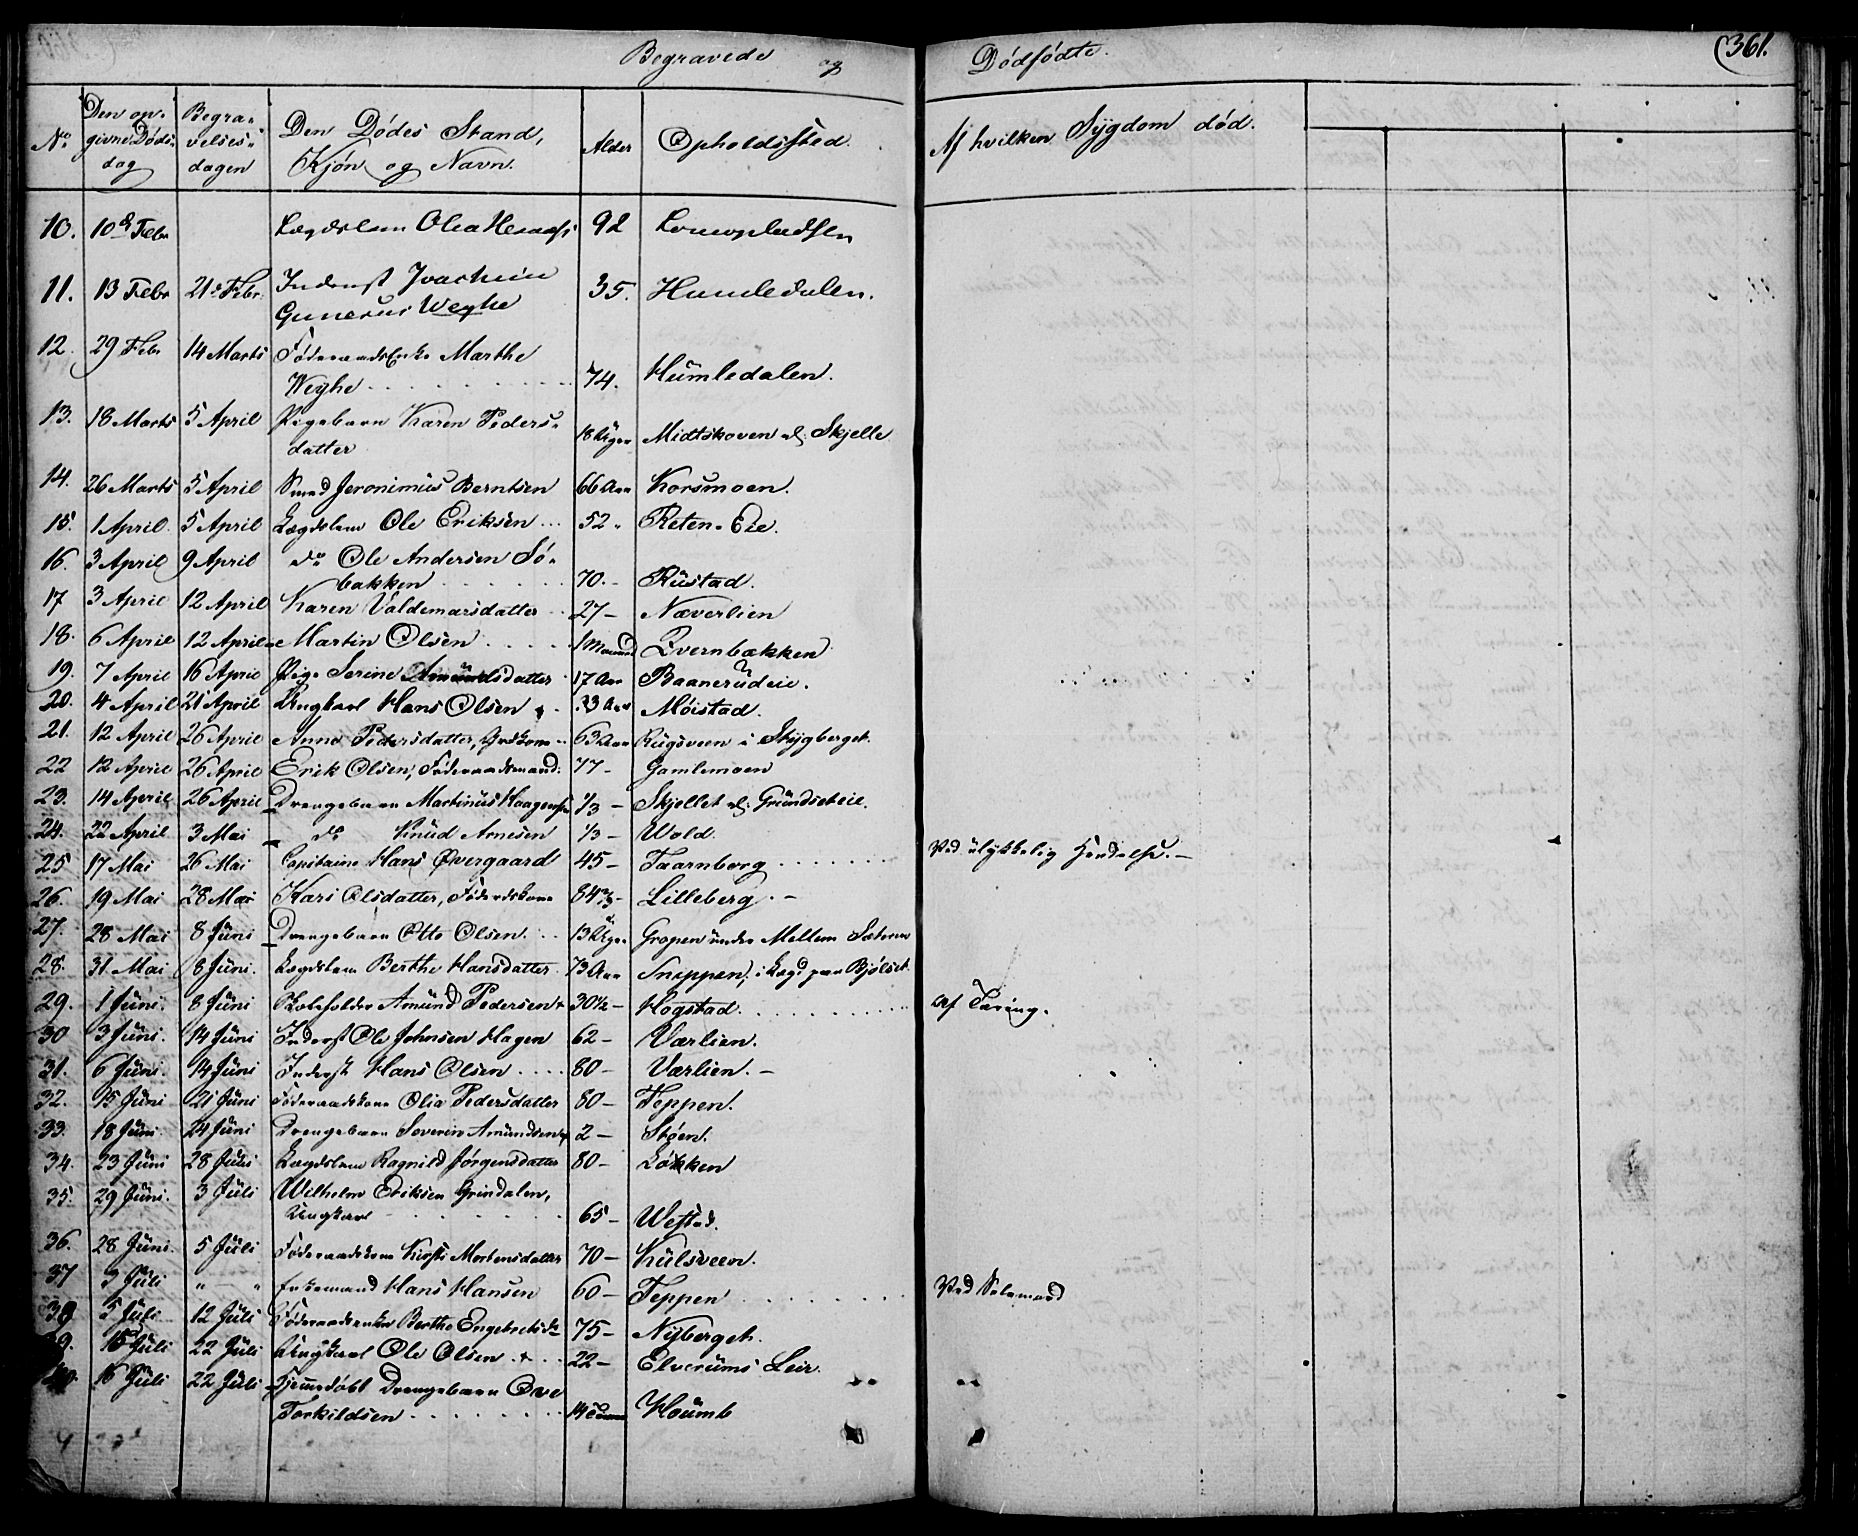 Begravede og Dødfødte.
361.
No. Den opgivne Dødsdag Begravelsesdagen Den Dødes Stand, Kjøn og Navn. Alder Opholdssted. Af hvilken Sygdom død.
10. 10d Febr Lægdslem Olea 92
11. 13 Febr 21d Febr. Inderst Joachim
Gunerus Weyhe 35. Humledalen.
12. 29 Febr 14 Marts Føderaads Enke Marthe
Weyhe 74. Humledalen.
13. 18 Marts 5 April Pigebarn Karen Peders-
datter 18 Uger Midtskoven v/ Skjelle
14. 26 Marts 5 April Smed Jeronimus Berntsen 66 Aar Korsmoen.
15. 1 April. 5 April Lægdslem Ole Eriksen ... 52 " Reten-Eie.
16. 3 April 9 April do Ole Andersen Sö-
bakken 70.- Rustad.
17 3 April 12 April Karen Valdemarsdatter 27- Næverlien
18. 6 April 12 April Martin Olsen 1 Maaned Qvernbækken
19. 7 April 16 April Pige Serine Amundsdatter 17 Aar Baanerudeie.
20. 4 April 21 April Ungkarl Hans Olsen 33 Aar Møistad.
21. 12 April 26 April Anne Pedersdatter, Grdkone 63 Aar Rugsveen i Skygberget.
22 12 April 26 April Erik Olsen, Føderaadsmand. 77- Gamlemoen
23. 14 April 26 April Drengebarn Martinus Haagensen 1/3 - Skjellet v/ Grundseteie.
24. 22 April 3 Mai do Knud Arnesen 1/3 - Wold.
25 17 Mai 26 Mai Capitaine Hans Øvergaard 45- Taarnborg Ved ulykkelig Hendelse.-
26. 19 Mai 28 Mai Kari Olsdatter, Føderdskone 84 2/3- Lilleberg.-
27. 28 Mai 8 Juni Drengebarn Otto Olsen. 13 Uger Gropen under Mellem Sæteren
28. 31 Mai 8 Juni. Lægdslem Berthe Hansdatter 73 Aar Sneppen, i Lægd paa Bjølset
29. 1 Juni 8 Juni Skoleholder Amund Pedersen 30 1/2- Hogstad. Af Tæring.
30 3 Juni. 14 Juni Inderst Ole Johnsen Hagen 62- Værlien.
31. 6 Juni. 14 Juni Inderst Hans Olsen 80- Værlien.-
32. 15 Juni 21 Juni Føderaadskone Olia Pedersdatter 80- Teppen.
33. 18 Juni. 24 Juni Drengebarn Severin Amundsen 2- Støen.
34. 23 Juni 28 Juni Lægdslem Ragnild Jørgensdatter 80- Løkken
35. 29 Juni. 3 Juli Wilhelm Eriksen Grindalen,
Ungkarl 65- Westad.
36. 28 Juni. 5 Juli Føderaadskone Kirsti Mortensdatter 70- Kulsveen.
37 3 Juli " " Enkemand Hans Hansen 60- Teppen Ved Selvmord
38 5 Juli 12 Juli Føderaadsenke Berthe Engebretsd. 75- Nyberget.
39. 15 Juli 22 Juli Ungkarl Ole Olsen 22- Elverums Leir.
40. 16 Juli 22 Juli Hjemmedøbt Drengebarn Ove
Torkildsen 14 Houmb